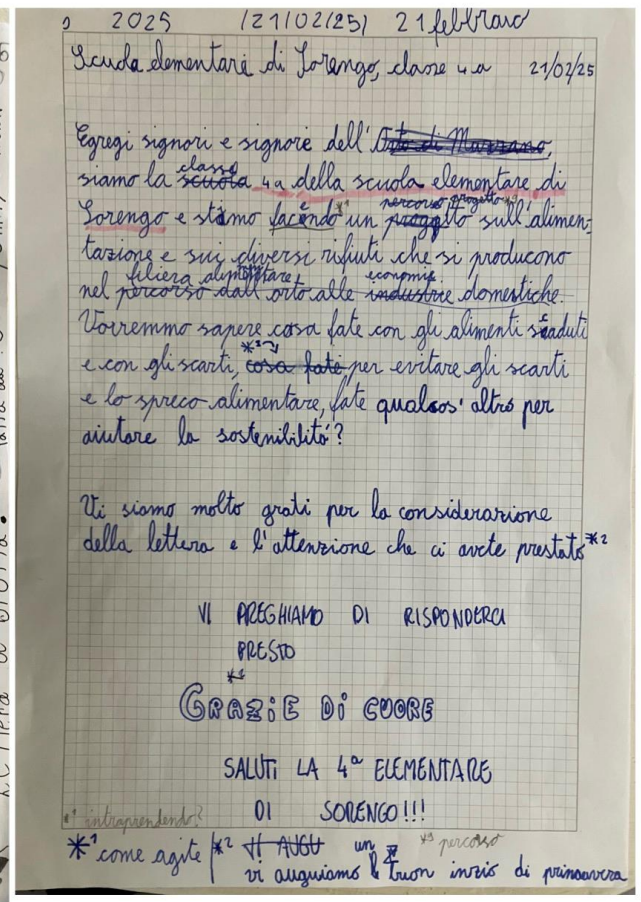 2025 (21/02/25) 21 febbraio
Scuola elementare di Sorengo, classe 4a 21/02/25
Egregi signori e signore dell'Orto di Marzano,
classe
siamo la scuola 4a della scuola elementare di
percorso progetto *3
Sorengo e stamo facendo *1 un proggetto sull'alimen-
tazione e sui diversi rifiuti che si producono
filiera alimentare economie
nel percorso dall'orto alle industrie domestiche.
Vorremmo sapere cosa fate con gli alimenti scaduti
*1
e con gli scarti, cosa fate per evitare gli scarti
e lo spreco alimentare, fate qualcos' altro per
aiutare la sostenibilità?
Vi siamo molto grati per la considerazione
della lettera e l'attenzione che ci avete prestato *2
VI PREGHIAMO DI RISPONDERCI
PRESTO
GRAZiE Di CUORE
SALUTI LA 4ª ELEMENTARE
*1 intraprendendo? DI SORENGO!!!
*1 come agite *2 VI AUGU un *3 percorso
vi auguiamo buon inzio di primavera